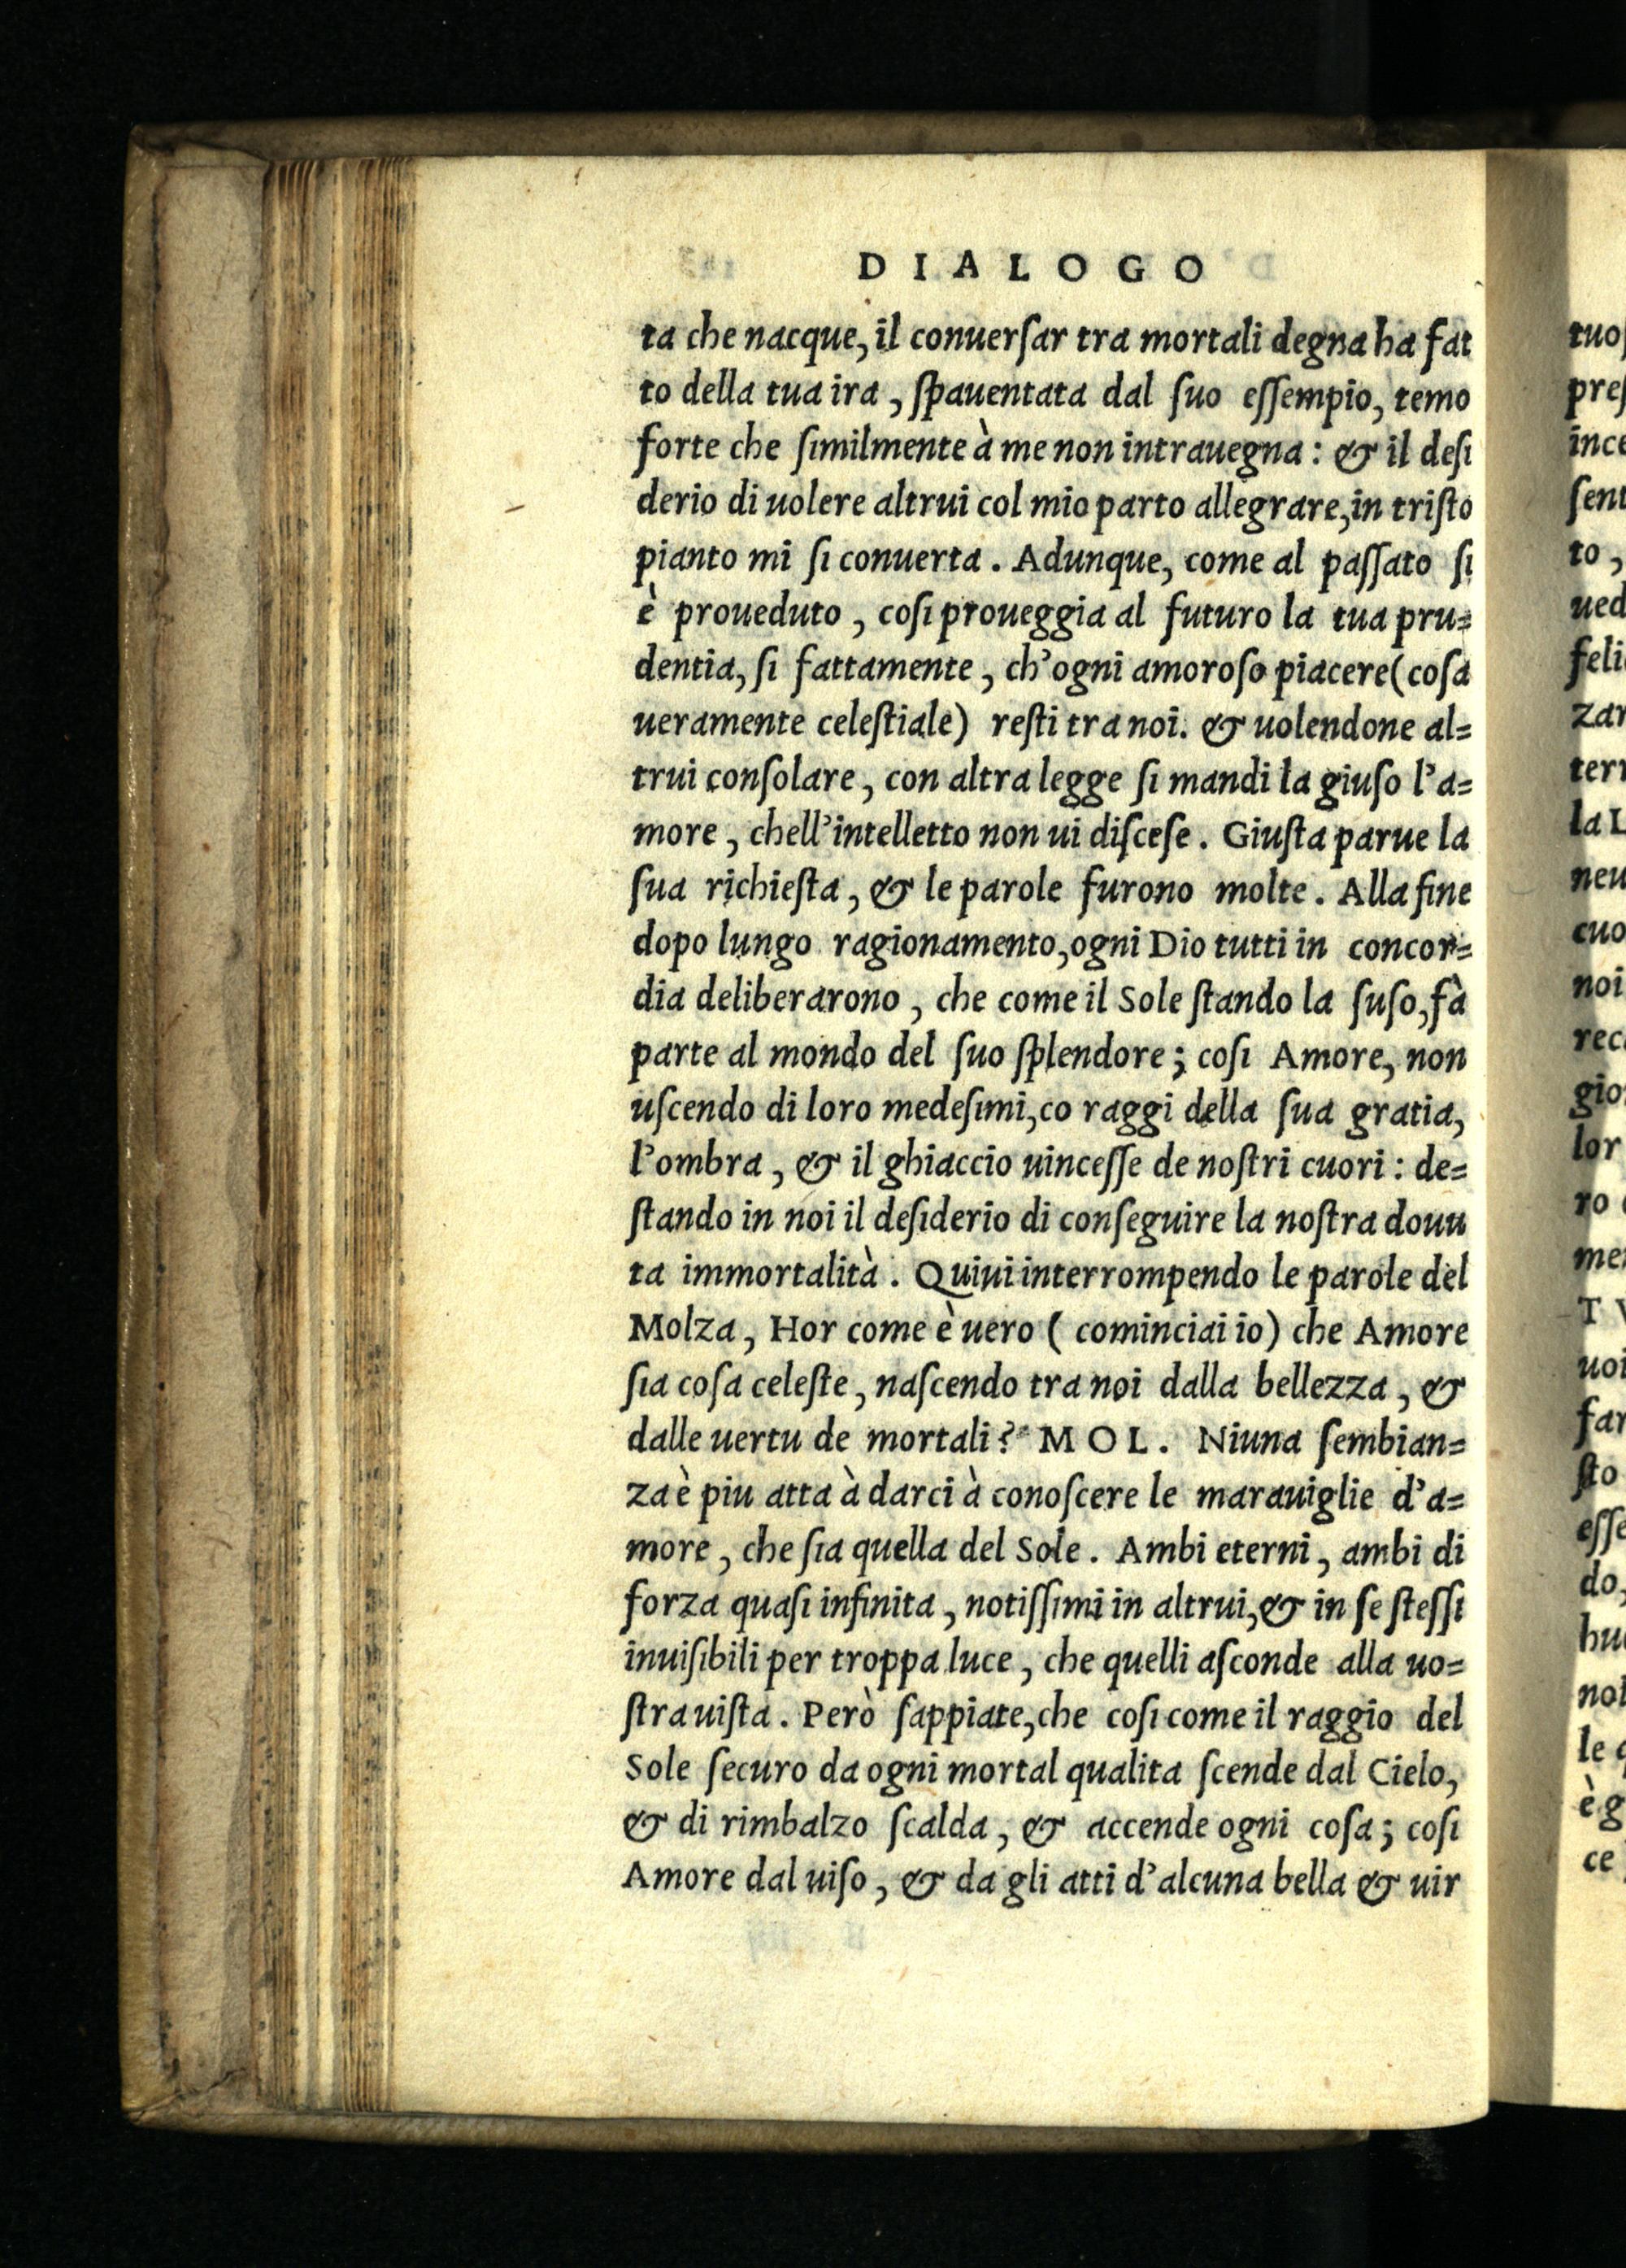 DIALOGO
ta che nacque, il conuerſar tra mortali degna ha fat
to della tua ira, ſpauentata dal ſuo eſſempio, temo
forte che ſimilmente à me non intrauegna: & il deſi
derio di uolere altrui col mio parto allegrare, in triſto
pianto mi ſi conuerta. Adunque, come al paſſato ſi
è proueduto, coſi proueggia al futuro la tua pru=
dentia, ſi fattamente, ch'ogni amoroſo piacere (coſa
ueramente celeſtiale) reſti tra noi. & uolendone al=
trui conſolare, con altra legge ſi mandi la giuſo l'a=
more, chell'intelletto non ui diſceſe. Giuſta parue la
ſua richieſta, & le parole furono molte. Alla fine
dopo lungo ragionamento, ogni Dio tutti in concor=
dia deliberarono, che come il Sole ſtando la ſuſo, fà
parte al mondo del ſuo ſplendore; coſi Amore, non
uſcendo di loro medeſimi, co raggi della ſua gratia,
l'ombra, & il ghiaccio uinceſſe de noſtri cuori: de=
ſtando in noi il deſiderio di conſeguire la noſtra douu
ta immortalità. Quiui interrompendo le parole del
Molza, Hor come è uero (cominciai io) che Amore
ſia coſa celeſte, naſcendo tra noi dalla bellezza, &
dalle uertu de mortali? MOL. Niuna ſembian=
za è piu atta à darci à conoſcere le marauiglie d'a=
more, che ſia quella del Sole. Ambi eterni, ambi di
forza quaſi infinita, notiſſimi in altrui, & in ſe ſteſſi
inuiſibili per troppa luce, che quelli aſconde alla uo=
ſtra uiſta. Però ſappiate, che coſi come il raggio del
Sole ſecuro da ogni mortal qualita ſcende dal Cielo,
& di rimbalzo ſcalda, & accende ogni coſa; coſi
Amore dal uiſo, & da gli atti d'alcuna bella & uir